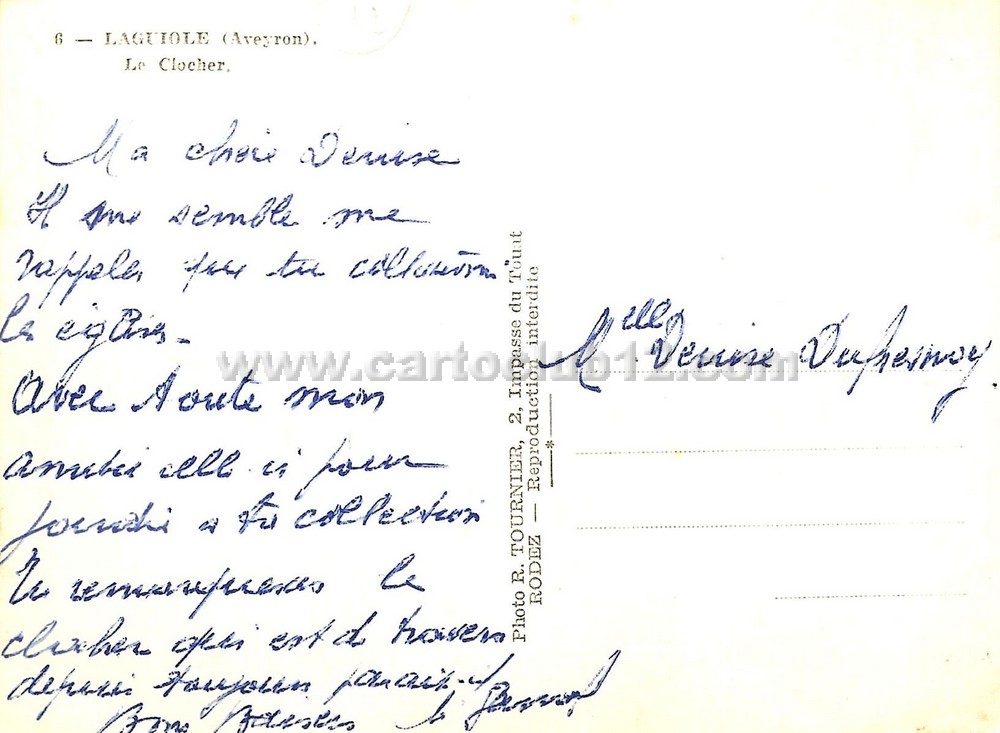 6 — LAGUIOLE (Aveyron).
Le Clocher.
Ma chere Denise
Il me semble me
rappeler que tu collections
les églises.
Avec toute mon
amitié celle ci pour
joindre a ta collection
Tu remarqueras le
clocher qui est de travers
depuis toujours parait-il
Bons Baisers
Photo R. TOURNIER, 2, Impasse du Touat
RODEZ — Reproduction interdite
*
Melle Denise Dufresnoy
www.cartoclub12.com